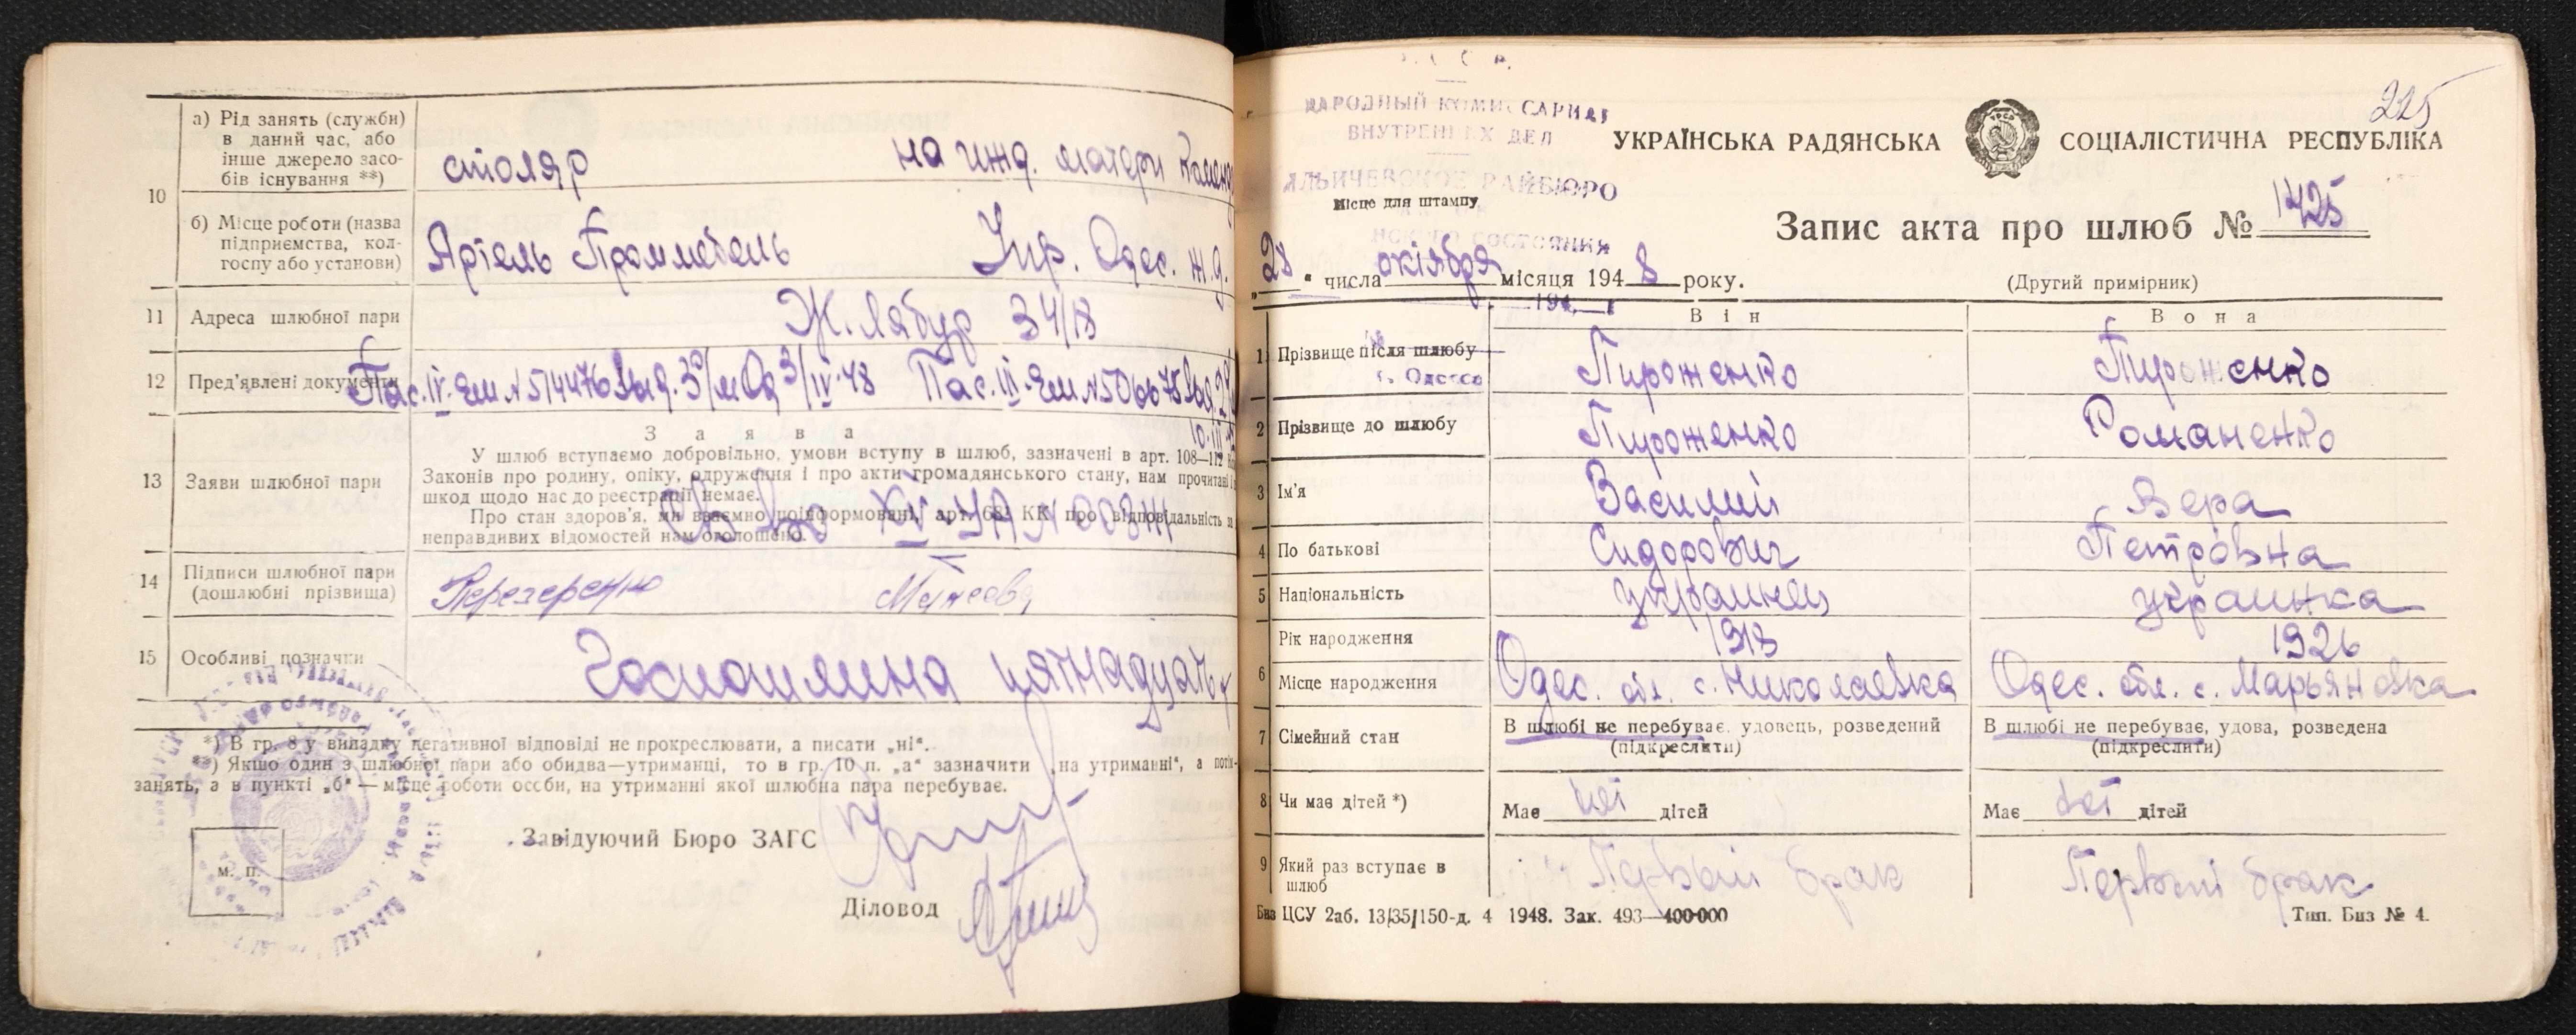 10
а) Рід занять (служби)
в даний час, або
інше джерело засо-
бів існування **)
столяр
на ижд. матери
б) Місце роботи (назва
підприємства, кол-
госпу або установи)
Артель Проммебель
Упр. Одес. ж.д.
11 Адреса шлюбної пари
Ж. Лябур 34/18
12 Пред'явлені документи
Пас. IV. ЕШ N 514476 Выд. 3/IV-48 Пас. III-ЕШ N 506675 Выд.
10-III
13 Заяви шлюбної пари
З а я в а
У шлюб вступаємо добровільно, умови вступу в шлюб, зазначені в арт. 108—112
Законів про родину, опіку, одруження і про акти громадянського стану, нам прочитані і
шкод щодо нас до реєстрації немає.
Про стан здоров'я, ми взаємно поінформовані, арт. 68¹ КК про відповідальність за
неправдивих відомостей нам оголошено.
14 Підписи шлюбної пари
(дошлюбні прізвища)
15 Особливі позначки
Госпошлина пятнадцать
*) В гр. 8 у випадку негативної відповіді не прокреслювати, а писати „ні“.
**) Якщо один з шлюбної пари або обидва—утриманці, то в гр. 10 п. „а“ зазначити „на утриманні“, а потім
занять, а в пункті „б“ — місце роботи особи, на утриманні якої шлюбна пара перебуває.
Завідуючий Бюро ЗАГС
м. п.
Діловод
225
НАРОДНЫЙ КОМИССАРИАТ
ВНУТРЕННИХ ДЕЛ
ИЛЬИЧЕВСКОЕ РАЙБЮРО
Місце для штампу
СОСТОЯНИЯ
УКРАЇНСЬКА РАДЯНСЬКА СОЦІАЛІСТИЧНА РЕСПУБЛІКА
Запис акта про шлюб № 1425
„28“ числа октября місяця 1948 року.
(Другий примірник)
194
г. Одесса
Він Вона
1 Прізвище після шлюбу Пироженко Пироженко
2 Прізвище до шлюбу Пироженко Романенко
3 Ім'я Василий Вера
4 По батькові Сидорович Петровна
5 Національність украинец украинка
6 Рік народження 1918 1926
Місце народження Одес. обл. с. Николаевка Одес. обл. с. Марьяновка
7 Сімейний стан В шлюбі не перебуває, удовець, розведений В шлюбі не перебуває, удова, розведена
(підкреслити) (підкреслити)
8 Чи має дітей *) Має нет дітей Має нет дітей
9 Який раз вступає в
шлюб
Первый брак Первый брак
Биз ЦСУ 2аб. 13/35/150-д. 4 1948. Зак. 493—400·000 Тип. Биз № 4.